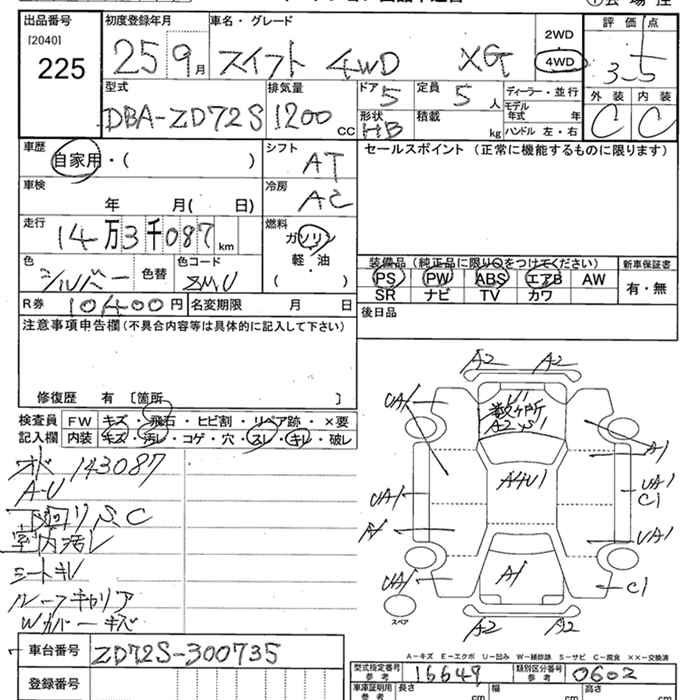 出品番号
[2040]
225
初度登録年月
25 9月
車名・グレード
スイフト 4WD XG
2WD
4WD
評価点
3.5
外装 内装
C C
型式
DBA-ZD72S
排気量
1200 CC
ドア
5
形状
HB
定員
5 人
積載
kg
ディーラー・並行
モデル年式 年
ハンドル 左・右
車歴
自家用・( )
シフト
AT
車検
年 月( 日)
冷房
AC
走行
14万3千087km
燃料
ガソリン
軽・油
( )
色
シルバー
色替
色コード
ZMU
R券 10400円
名変期限 月 日
セールスポイント (正常に機能するものに限ります)
装備品 (純正品に限り○をつけてください)
新車保証書
PS PW ABS エアB AW
有・無
SR ナビ TV カワ
後日品
注意事項申告欄 (不具合内容等は具体的に記入して下さい)
修復歴 有 〔箇所 〕
検査員記入欄
FW キズ・飛石・ヒビ割・リペア跡・×要
内装 キズ・汚レ・コゲ・穴・スレ・キレ・破レ
143087
A-U
下回リS.C
室内汚レ
シートキレ
ルーフキャリア
Wカバーキズ
A2 A2
UA1
U1
数ヶ所
A2 S1
A1
A4U1
UA1
UA1
C1
A1
UA1
UA1
A1
C1
スペア
A2 A2
A-キズ E-エクボ U-凹み W-補修跡 S-サビ C-腐食 XX-交換済
車台番号
ZD72S-300735
登録番号
型式指定番号
参考
16649
類別区分番号
参考
0602
車庫証明用
参考
長さ cm
幅 cm
高さ cm